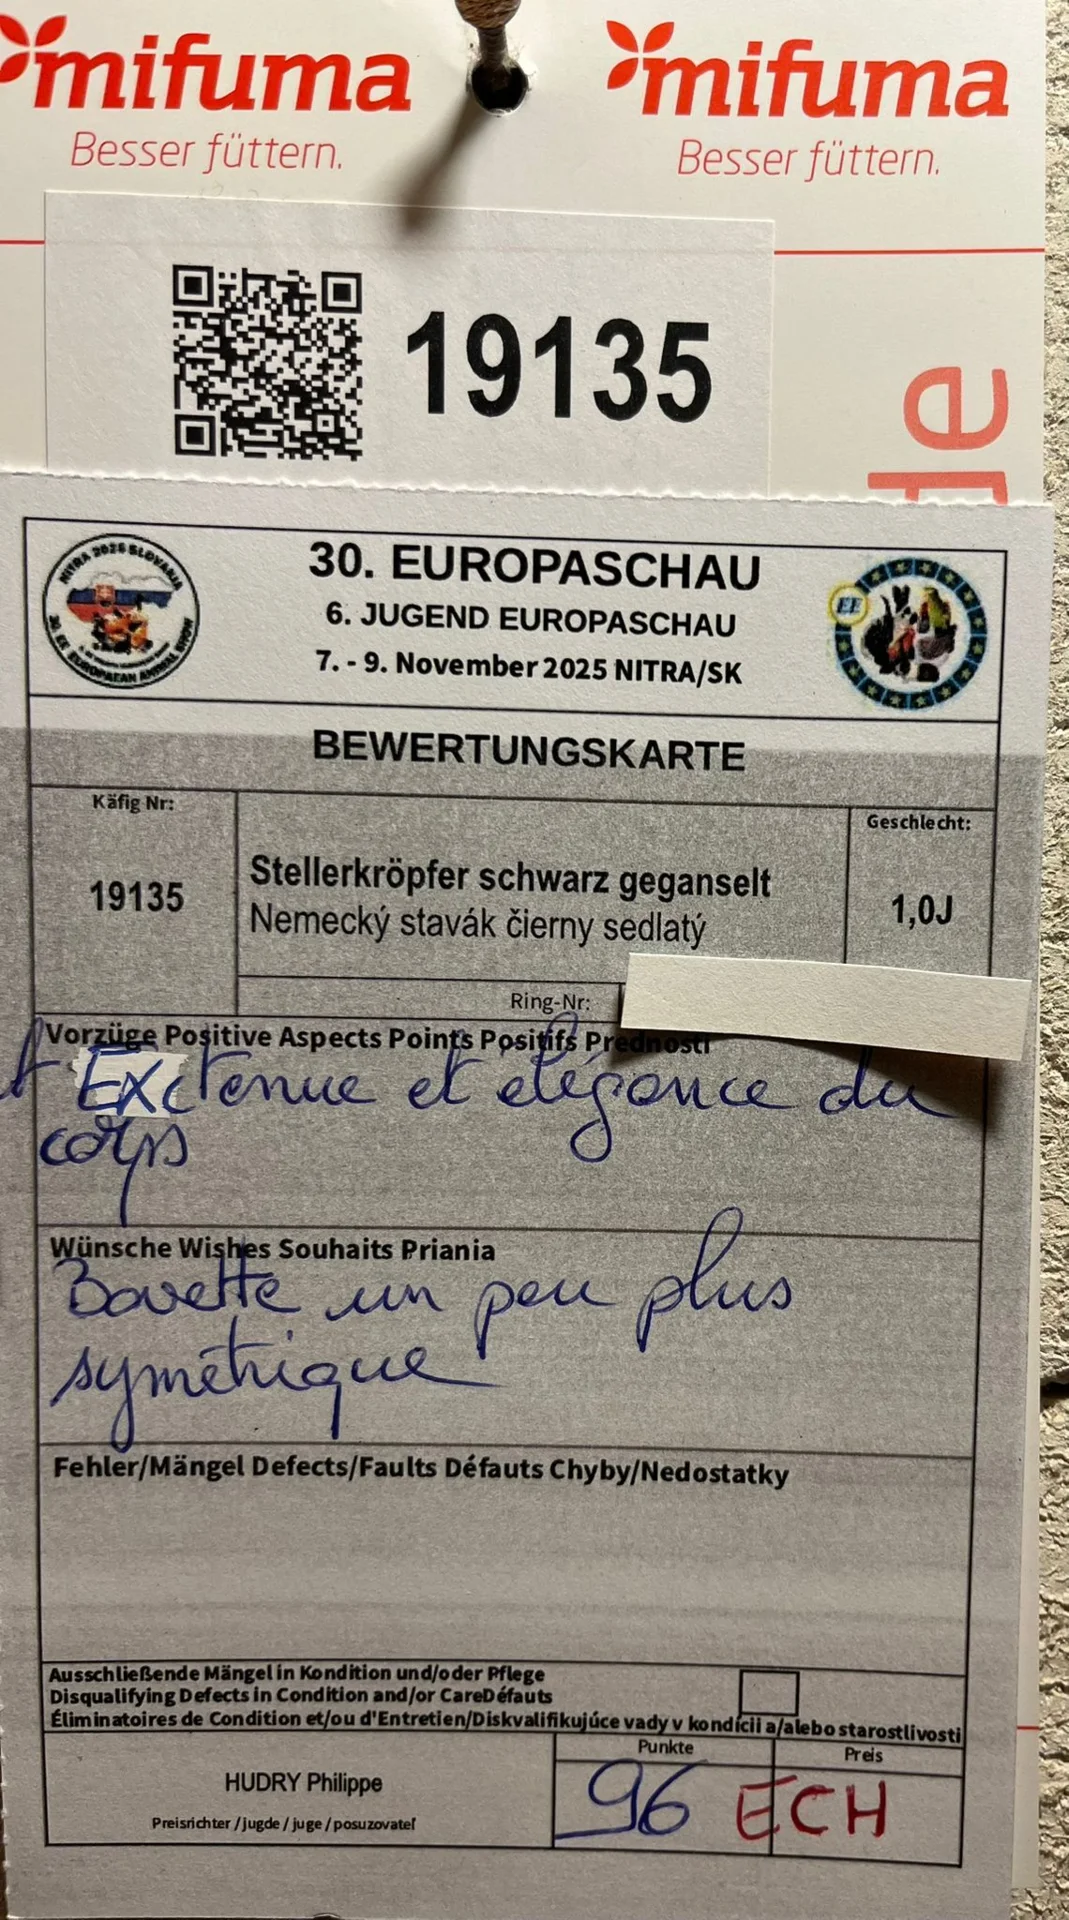 mifuma mifuma
Besser füttern. Besser füttern.
19135
de
NITRA 2025 SLOVAKIA
30. EE EUROPAEAN ANIMAL SHOW
30. EUROPASCHAU
6. JUGEND EUROPASCHAU
7. - 9. November 2025 NITRA/SK
EE
BEWERTUNGSKARTE
Käfig Nr:
19135
Stellerkröpfer schwarz geganselt
Nemecký stavák čierny sedlatý
Geschlecht:
1,0J
Ring-Nr:
Vorzüge Positive Aspects Points Positifs Prednosti
EXc tenue et élégance du
corps
Wünsche Wishes Souhaits Priania
Bavette un peu plus
symétrique
Fehler/Mängel Defects/Faults Défauts Chyby/Nedostatky
Ausschließende Mängel in Kondition und/oder Pflege
Disqualifying Defects in Condition and/or CareDéfauts
Éliminatoires de Condition et/ou d'Entretien/Diskvalifikujúce vady v kondícii a/alebo starostlivosti
HUDRY Philippe
Preisrichter / jugde / juge / posuzovateľ
Punkte
96
Preis
ECH